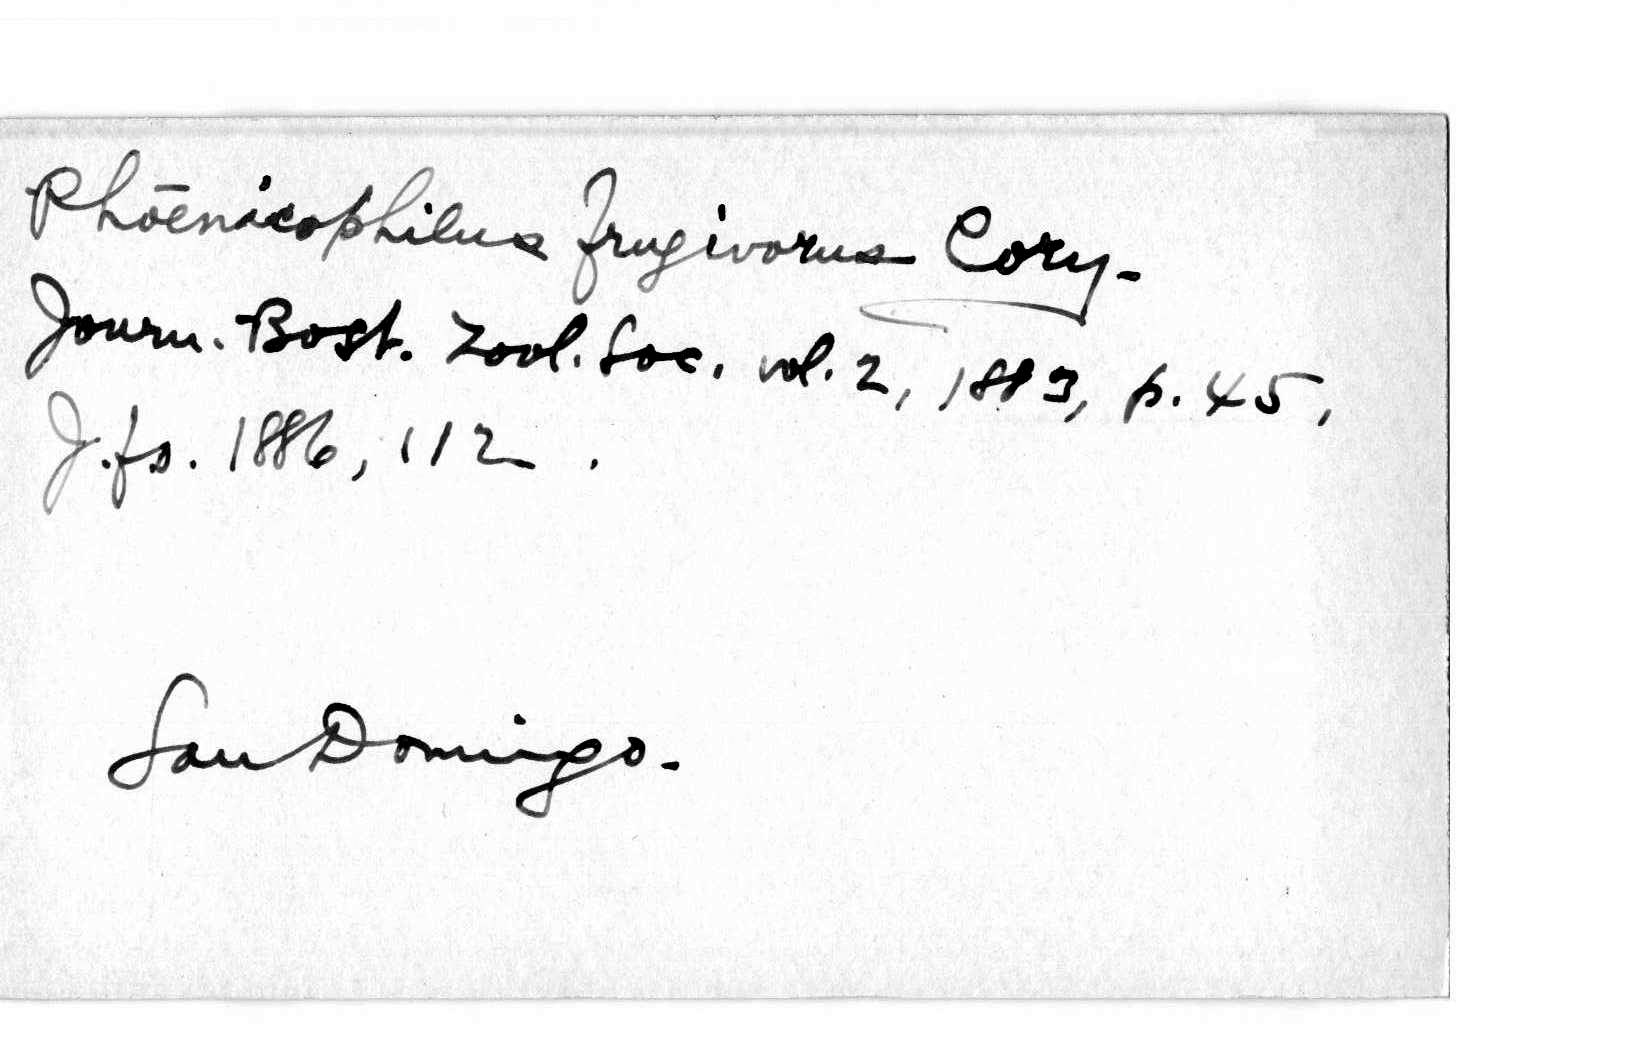 Phōenicophilus frugivorus Cory-
Journ. Bost. Zool. Soc. vol. 2, 1883, p. 45,
J.fs. 1886, 112 .
San Domingo.